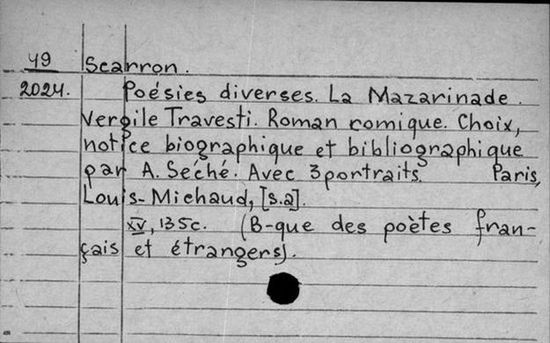 49 Scarron.
2024. Poésies diverses. La Mazarinade.
Vergile Travesti. Roman comique. Choix,
notice biographique et bibliographique
par A. Séché. Avec 3 portraits. Paris,
Louis-Michaud, [s.a].
XV, 135c. (B-que des poètes fran-
çais et étrangers).